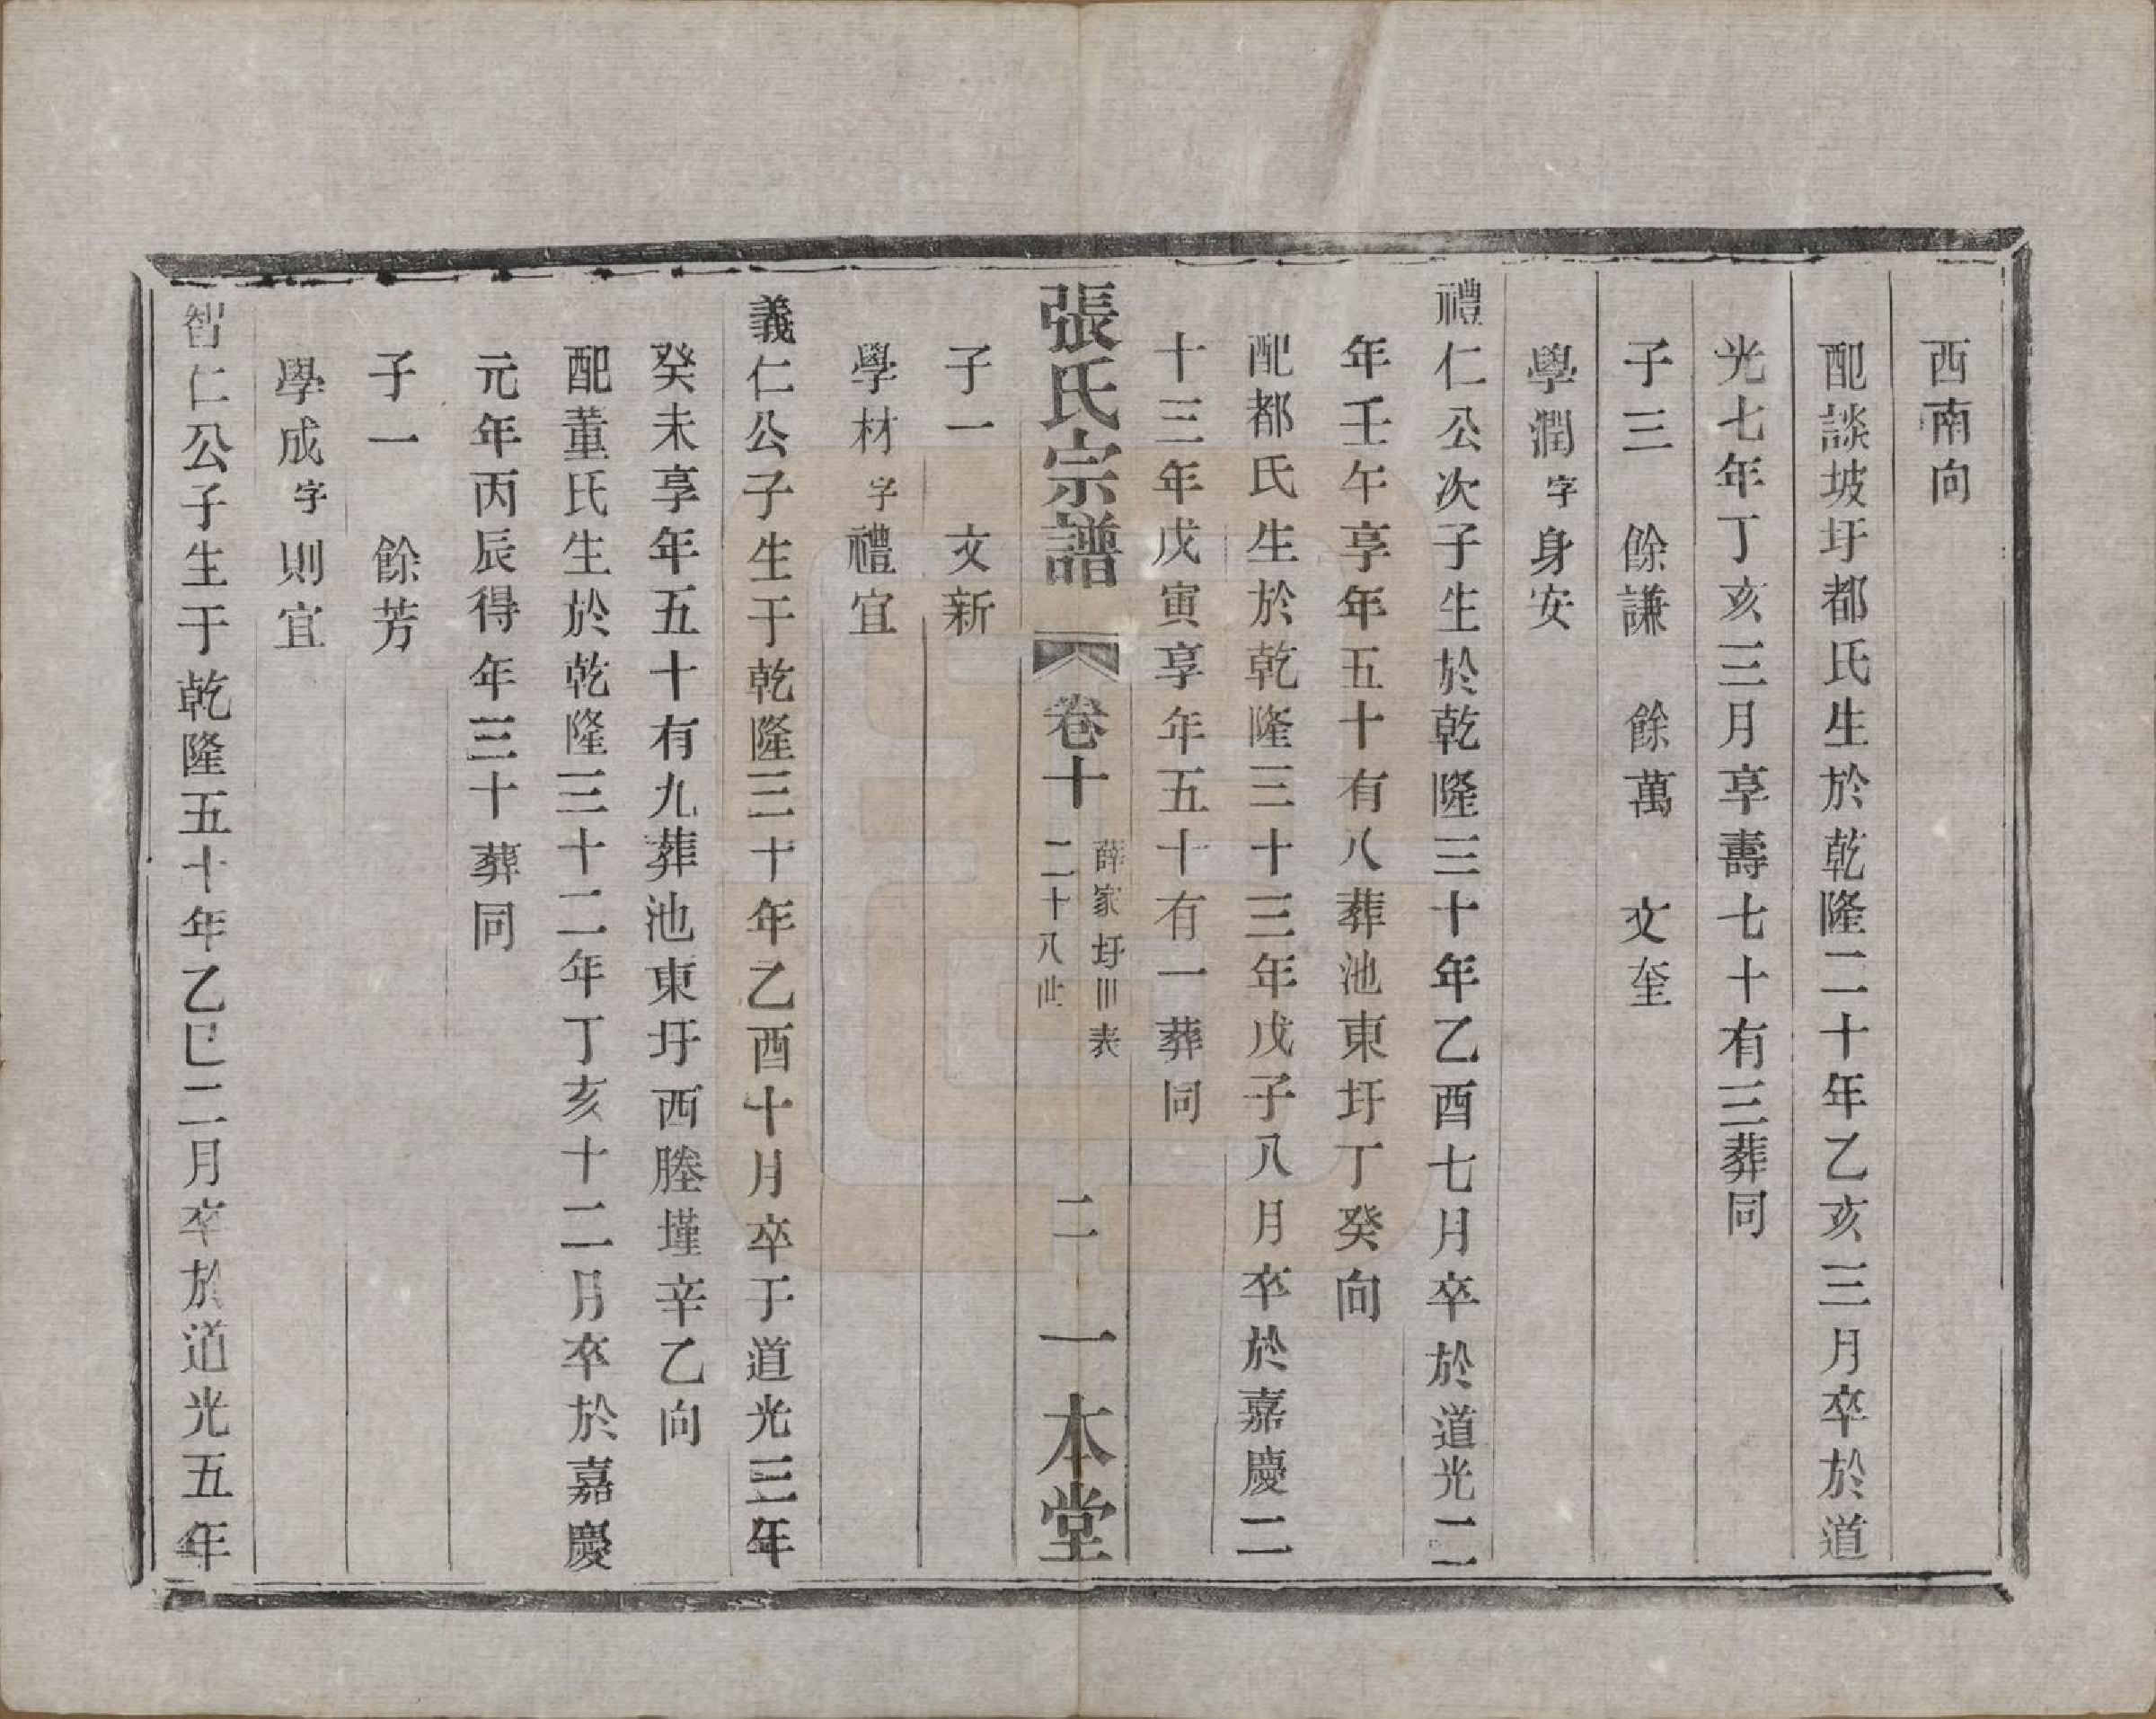 西南向
配談坡圩都氏生於乾隆二十年乙亥三月卒於道
光七年丁亥三月享壽七十有三葬同
子三　餘謙　餘萬　文奎
學潤字身安
禮仁公次子生於乾隆三十年乙酉七月卒於道光二
年壬午享年五十有八葬池東圩丁癸向
配都氏生於乾隆三十三年戊子八月卒於嘉慶二
十三年戊寅享年五十有一葬同
張氏宗譜　卷十　薛家圩川表　二十八世　二　一本堂
子一　文新
學材字禮宜
義仁公子生于乾隆三十年乙酉十月卒于道光三年
癸未享年五十有九葬池東圩西塍墐辛乙向
配董氏生於乾隆三十二年丁亥十二月卒於嘉慶
元年丙辰得年三十葬同
子一　餘芳
學成字則宜
智仁公子生于乾隆五十年乙巳二月卒於道光五年